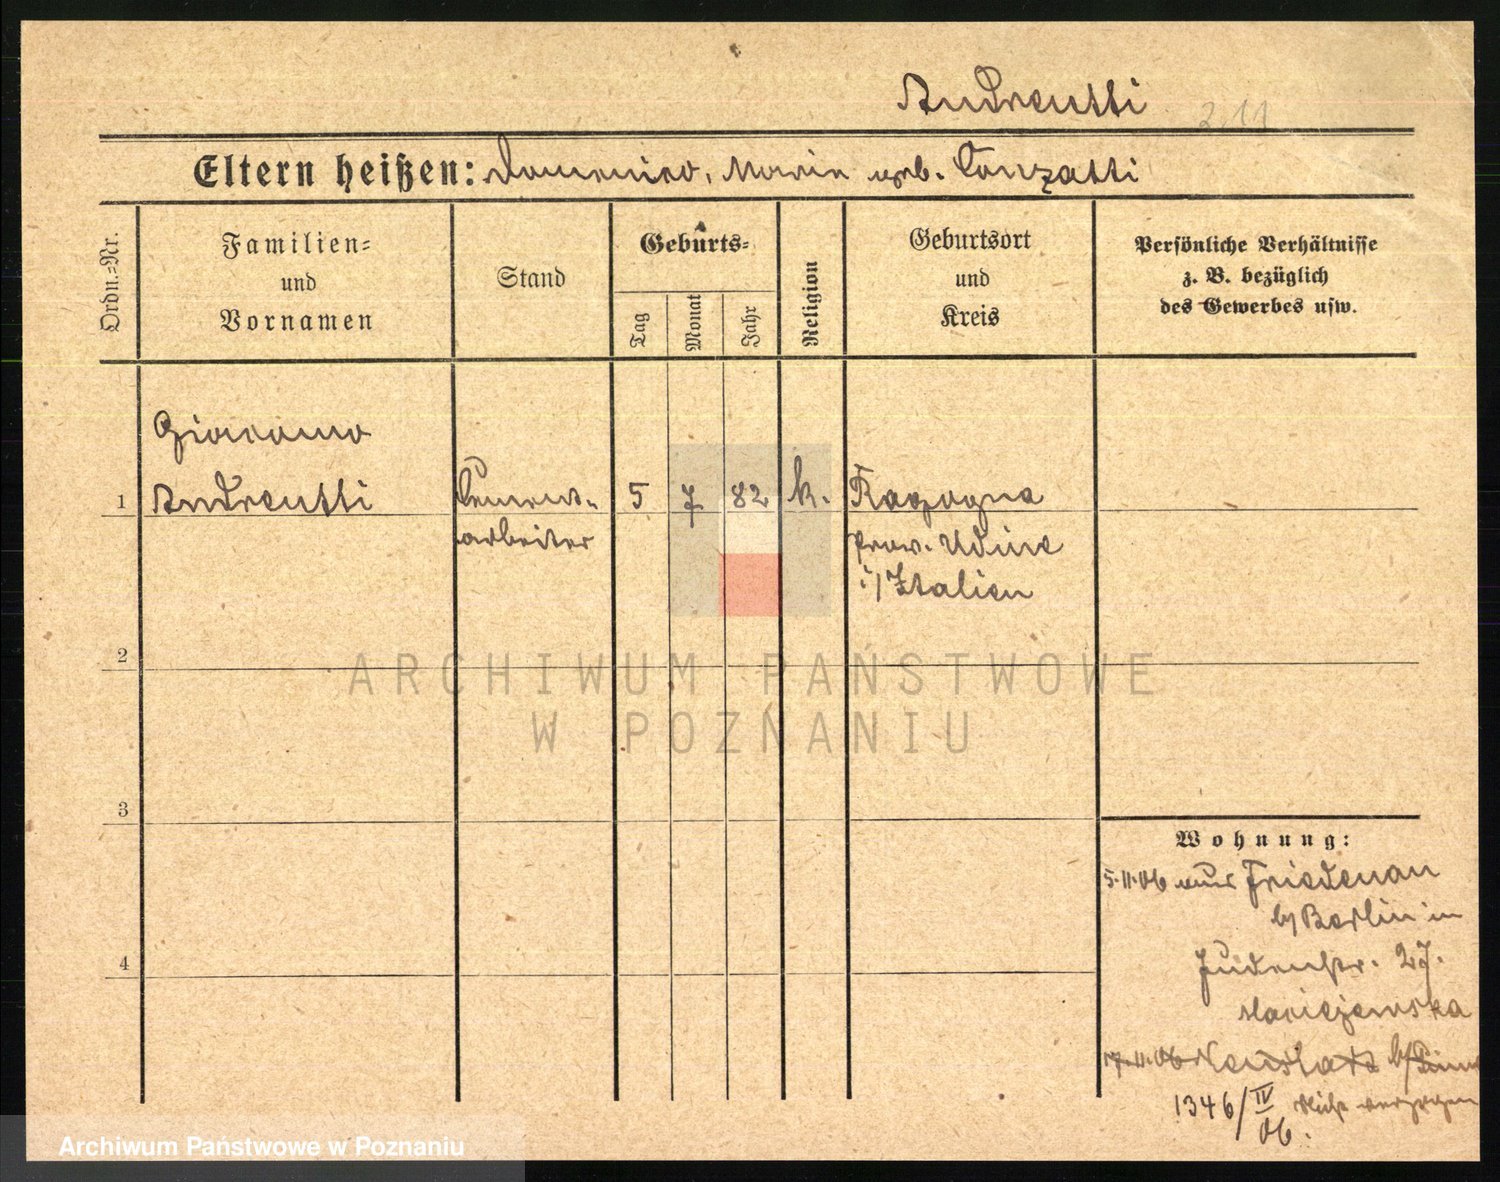 Andreutti
211
Eltern heißen: Domenico, Maria geb. Conzatti
Ordn.=Nr.
Familien=
und
Vornamen
Stand
Geburts=
Tag
Monat
Jahr
Religion
Geburtsort
und
Kreis
Persönliche Verhältnisse
z. B. bezüglich
des Gewerbes usw.
Giacomo
1 Andreutti Cement- 5 7 82 k. Ragogna
arbeiter prov. Udine
i/Italien
2
ARCHIWUM PAŃSTWOWE
W POZNANIU
3
Wohnung:
5.11.06 aus Friedenau
b/Berlin in
Judenstr. 27.
Maciejewska
17.11.06 Neustadt b/Pinne
1346/IV nicht verzogen
06.
4
Archiwum Państwowe w Poznaniu